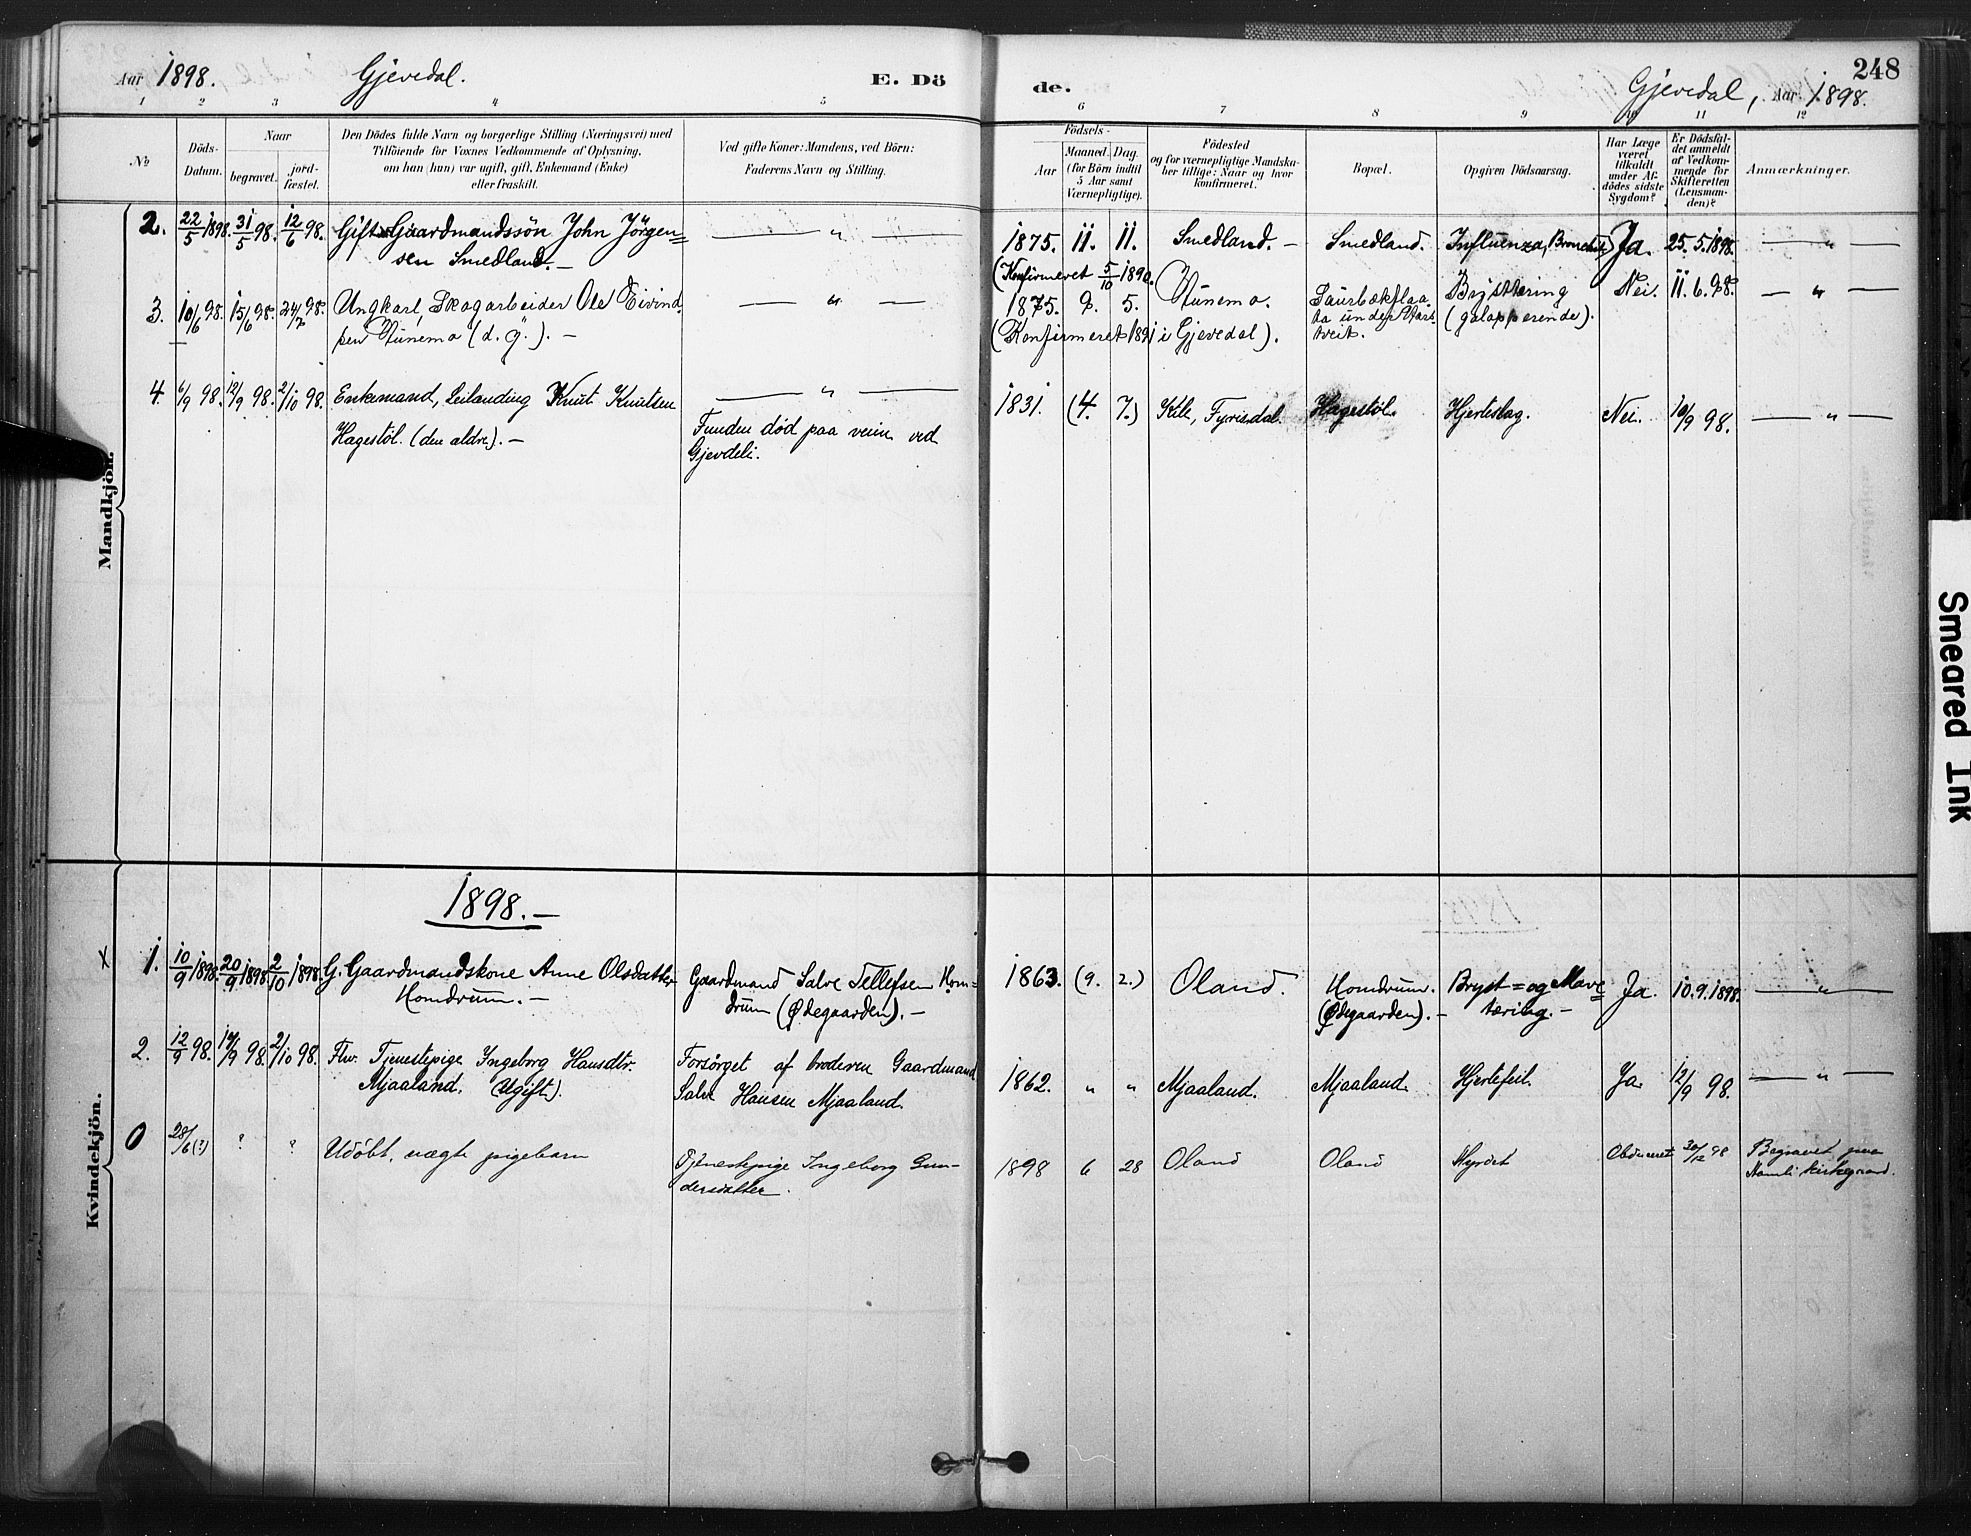 248
Aar 1898. Gjevedal. E. Dö
de. Gjevedal, Aar 1898.
1 2 3 4 5
6 7 8 9 10 11 12
No
Döds-
Datum.
Naar
begravet.
jord-
fæstet.
Den Dödes fulde Navn og borgerlige Stilling (Næringsvei) med
Tilföiende for Voxnes Vedkommende af Oplysning,
om han (hun) var ugift, gift, Enkemand (Enke)
eller fraskilt.
Ved gifte Koner: Mandens, ved Börn:
Faderens Navn og Stilling.
Födsels-
Aar
Maaned. Dag.
(for Börn indtil
5 Aar samt
Værnepligtige).
Födested
og for værnepligtige Mandska-
ber tillige: Naar og hvor
konfirmeret.
Bopæl.
Opgiven Dödsaarsag.
Har Læge
været
tilkaldt
under Af-
dödes sidste
Sygdom?
Er Dödsfal-
det anmeldt
af Vedkom-
mende for
Skifteretten
(Lensman-
den)?
Anmærkninger.
Mandkjön.
2. 22/5 1898. 31/5 98. 12/6 98. Gift Gaardmandssön John Jörgen=
sen Smedland. —
— „ —
1875. 11. 11. Smedland. — Smedland. Influenza, Ja. 25.5.1898. — „ —
(Konfirmeret 5/10 1890.
3. 10/6 98. 15/6 98. 24/7 98. Ungkarl, Skogarbeider Ole Eivind
sen (d. y.). —
— „ —
1875. 9. 5. Brysttæring Nei. 11.6.98. — „ —
(galopperende).
(Konfirmeret 1891 i Gjevedal).
tveit.
4. 6/9 98. 12/9 98. 2/10 98. Enkemand, Leilænding Knut Knutsen
Hagestöl. (den ældre). —
— „ —
Funden död paa veien ved
Gjevdeli.
1831. (4. 7.) Kile, Fyrisdal. Hagestöl. Hjerteslag. Nei. 10/9 98. — „ —
1898. —
Kvindekjön.
x 1. 10/9 1898. 20/9 1898 2/10 1898 G. Gaardmandskone Anne Olsdatter
Homdrum. —
Gaardmand Salve Tellefsen Hom=
drum (Ødegaarden). —
1863. (9. 2.) Oland. Homdrum. Bryst= og Mave= Ja. 10.9.1898. — „ —
(Ødegaarden). — tæring. —
2. 12/9 98. 19/9 98. 2/10 98. Fhv. Tjenestepige Ingeborg Hansdtr.
Mjaaland. (Ugift).
Forsörget af broderen Gaardmand
Salve Hansen Mjaaland.
1862. „ „ Mjaaland. Mjaaland. Hjertefeil. Ja. 12/9 98. — „ —
0 28/6 (?) ? ? Udöbt, uægte pigebarn
Tjenestepige Ingeborg Gun-
dersdatter.
1898 6 28 Oland Oland Myrdet Obduceret 30/12 98 Begravet paa
Aamli kirkegaard.
Smeared Ink